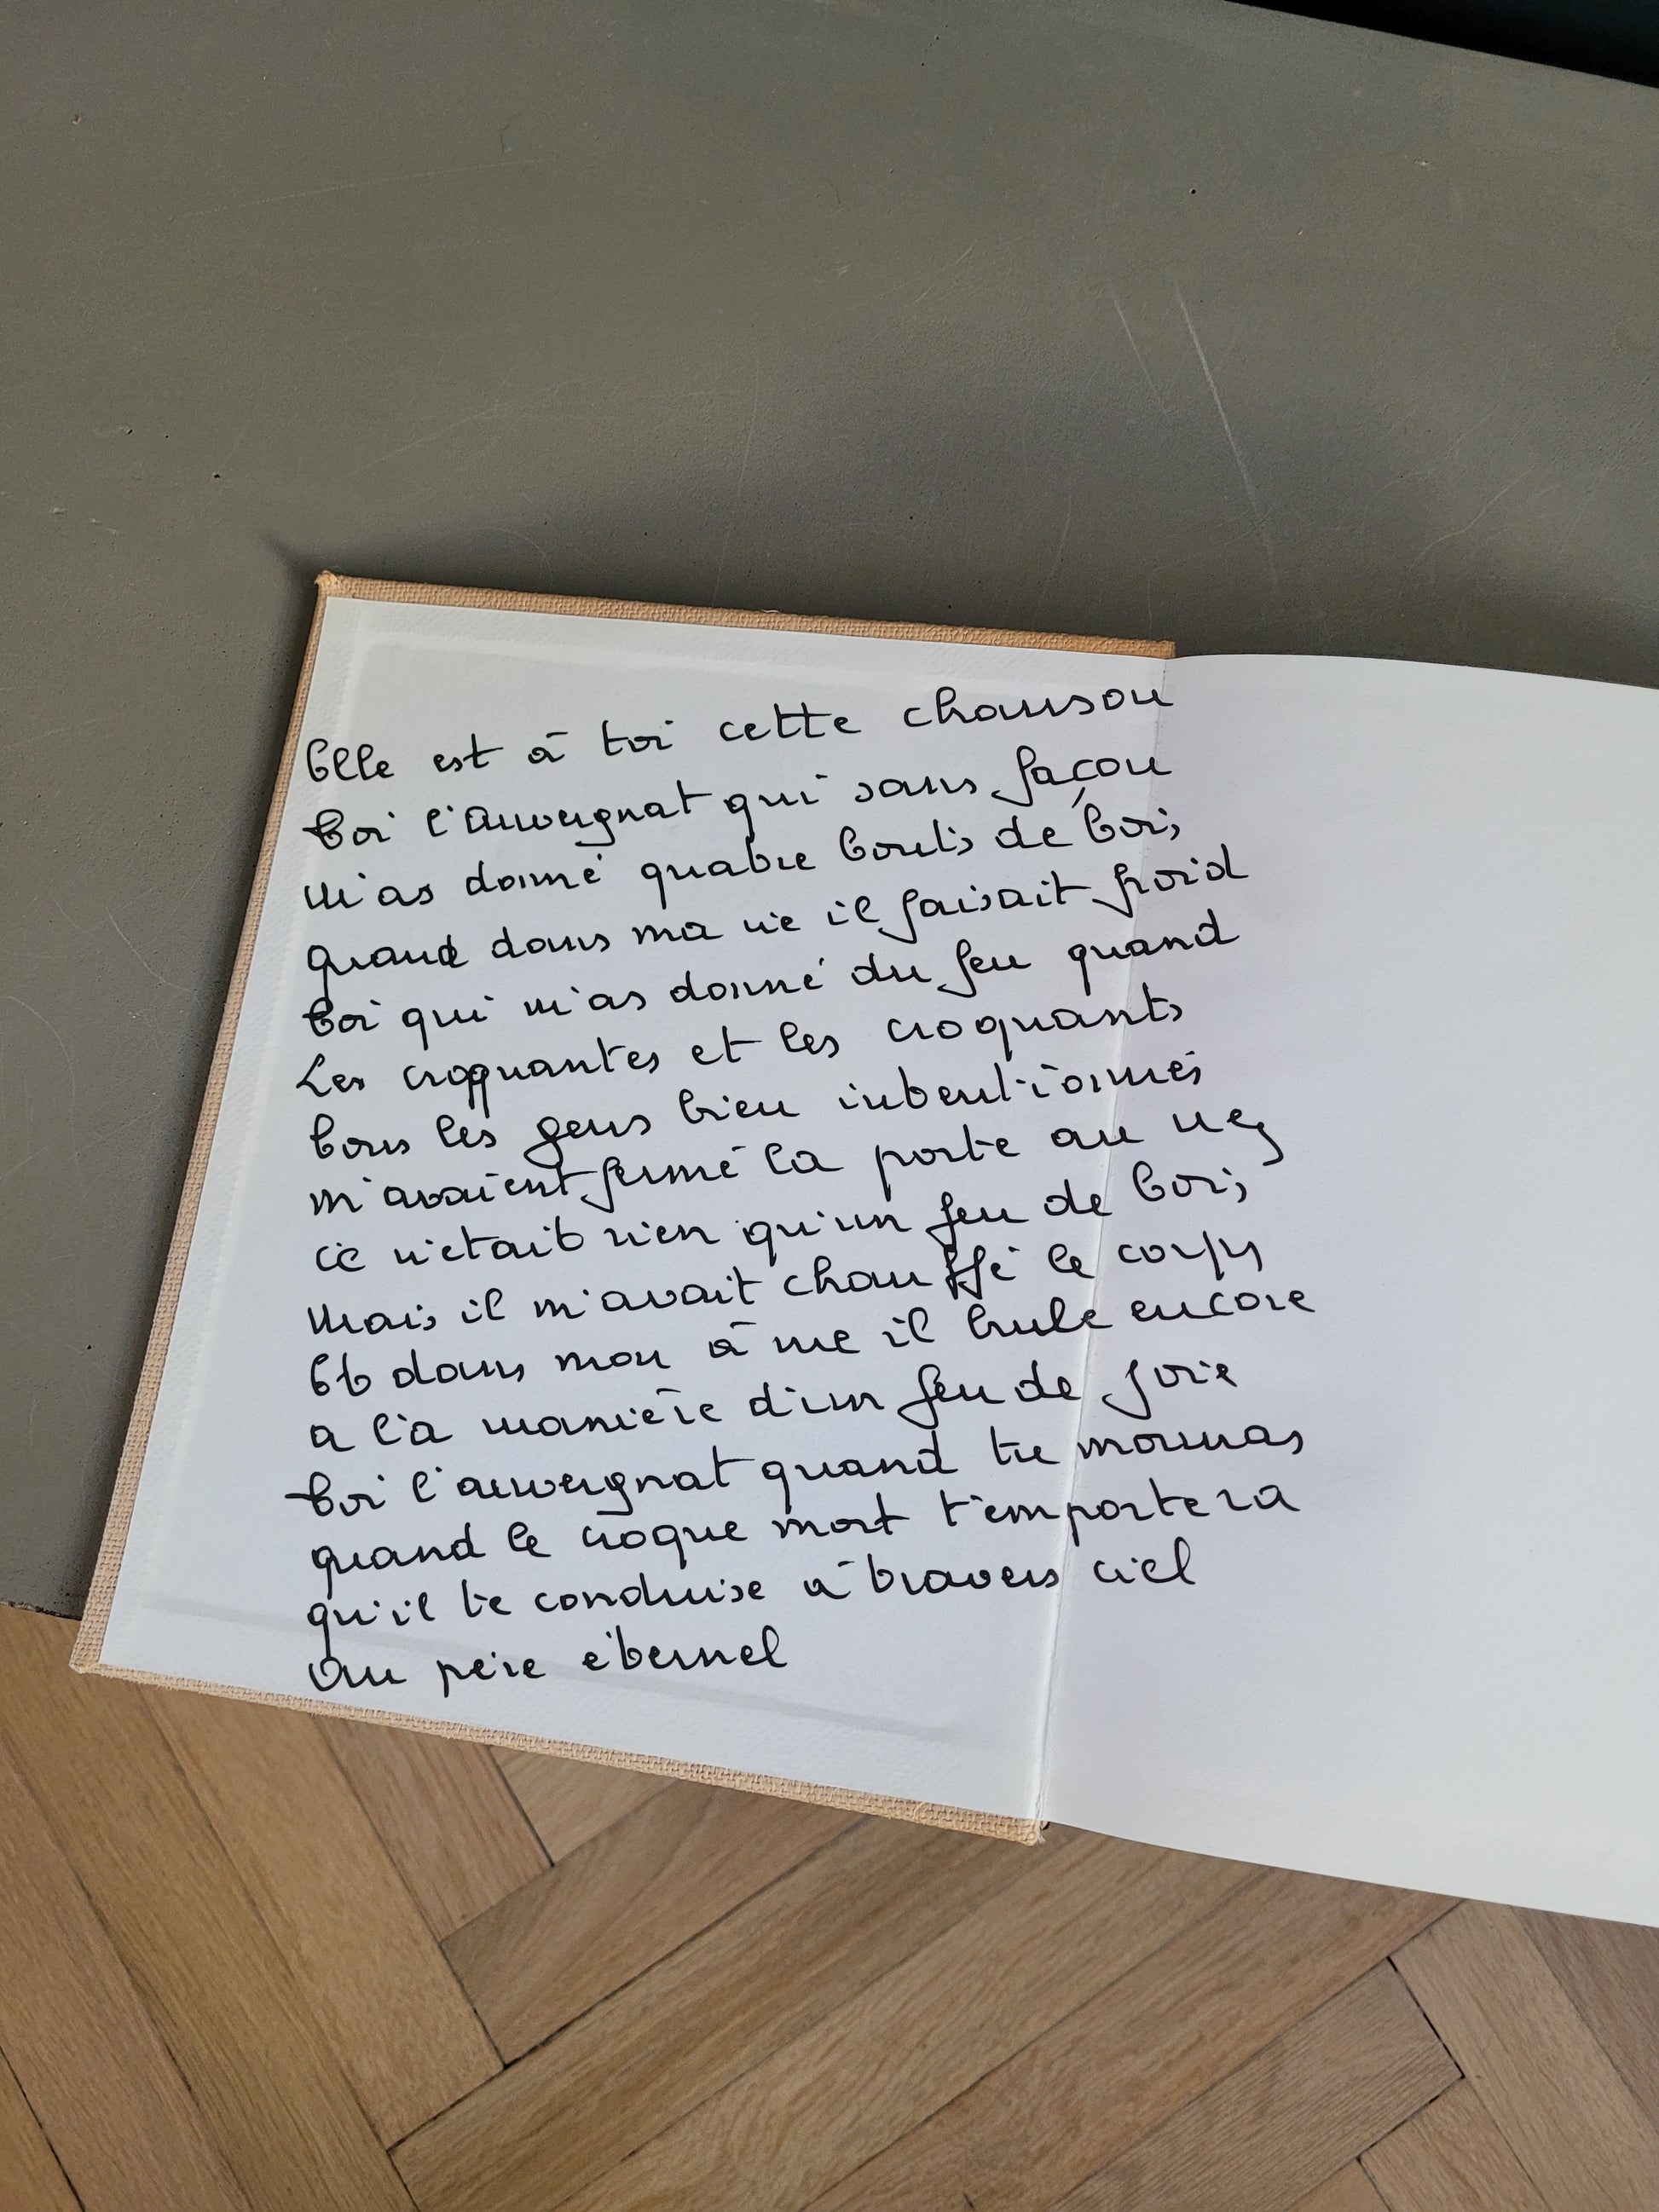 Elle est à toi cette chanson
Toi l'Auvergnat qui sans façon
m'as donné quatre bouts de bois
quand dans ma vie il faisait froid
Toi qui m'as donné du feu quand
Les croquantes et les croquants
Tous les gens bien intentionnés
m'avaient fermé la porte au nez
ce n'était rien qu'un feu de bois
mais il m'avait chauffé le corps
Et dans mon âme il brule encore
a la manière d'un feu de joie
Toi l'auvergnat quand tu mourras
quand le croque mort t'emportera
qu'il te conduise à travers ciel
Au père éternel